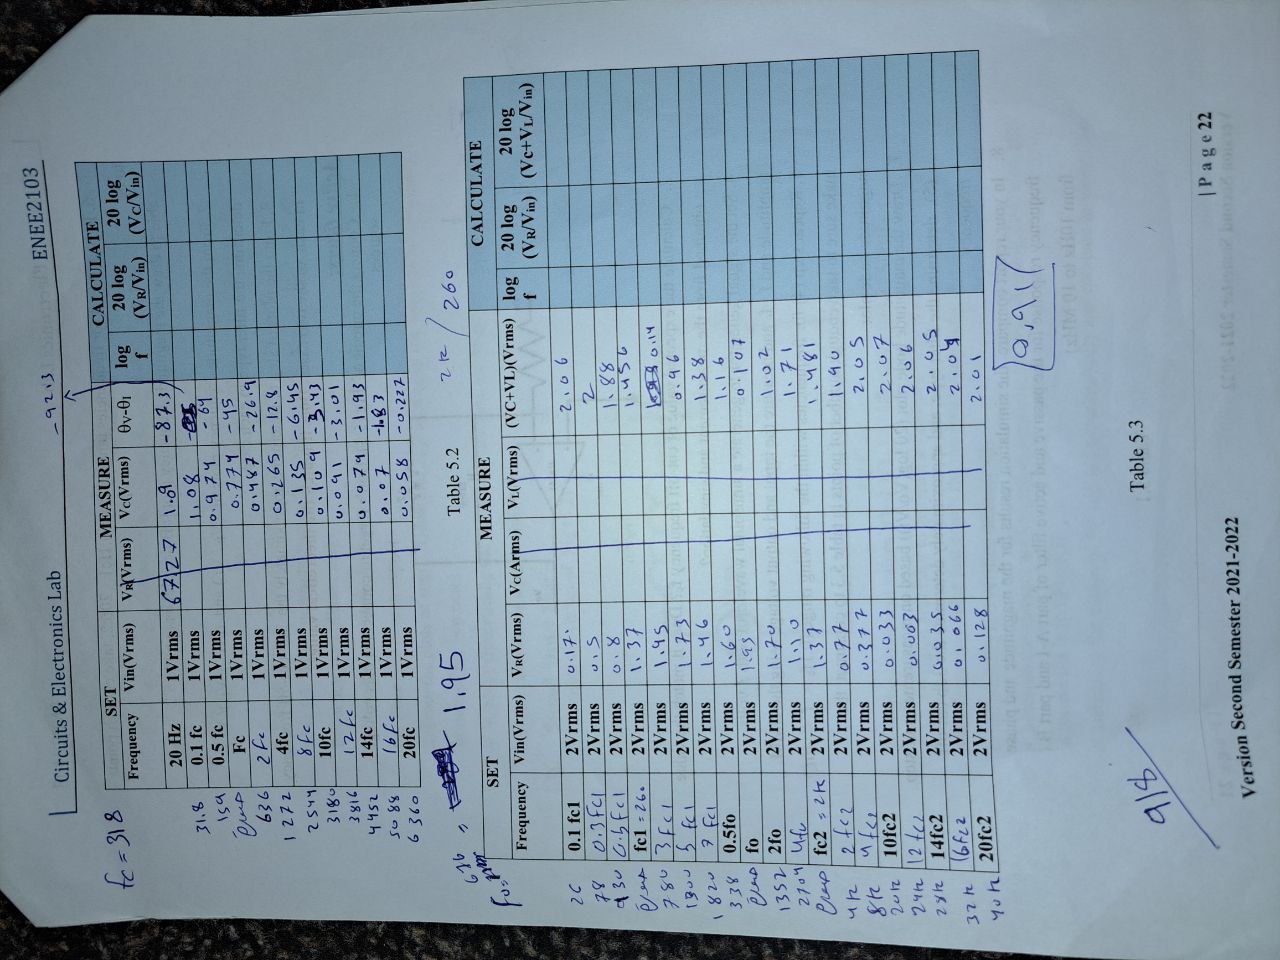 Circuits & Electronics Lab
ENEE2103
-92.3
fc = 318
SET MEASURE CALCULATE
Frequency Vin(Vrms) VR(Vrms) VC(Vrms) θV-θI log f 20 log (VR/Vin) 20 log (VC/Vin)
20 Hz 1Vrms 6727 1.09 -87.3
31.8 0.1 fc 1Vrms 1.08
159 0.5 fc 1Vrms 0.974 -64
Fc 1Vrms 0.774 -45
636 2fc 1Vrms 0.487 -26.9
1272 4fc 1Vrms 0.265 -12.8
2544 8fc 1Vrms 0.135 -6.45
3180 10fc 1Vrms 0.109 -3.43
3816 12fc 1Vrms 0.091 -3.01
4452 14fc 1Vrms 0.079 -1.93
5088 16fc 1Vrms 0.07 -1.83
6360 20fc 1Vrms 0.058 -0.227
Table 5.2
676
fo= = 1.95
2k / 260
SET MEASURE CALCULATE
Frequency Vin(Vrms) VR(Vrms) VC(Arms) VL(Vrms) (VC+VL)(Vrms) log f 20 log (VR/Vin) 20 log (Vc+VL/Vin)
26 0.1 fc1 2Vrms 0.17 2.06
78 0.3fc1 2Vrms 0.5 2
130 0.5fc1 2Vrms 0.8 1.88
fc1 = 260 2Vrms 1.37 1.456
780 3fc1 2Vrms 1.95 0.14
1300 5fc1 2Vrms 1.73 0.96
1820 7fc1 2Vrms 1.46 1.38
338 0.5fo 2Vrms 1.60 1.16
fo 2Vrms 1.95 0.107
1352 2fo 2Vrms 1.70 1.02
2704 4fo 2Vrms 1.10 1.71
fc2 = 2k 2Vrms 1.37 1.481
4k 2fc2 2Vrms 0.77 1.90
8k 4fc2 2Vrms 0.377 2.05
20k 10fc2 2Vrms 0.033 2.07
24k 12fc2 2Vrms 0.003 2.06
28k 14fc2 2Vrms 0.035 2.05
32k 16fc2 2Vrms 0.066 2.04
40k 20fc2 2Vrms 0.128 2.01
0.91
Table 5.3
9/8
| P a g e 22
Version Second Semester 2021-2022